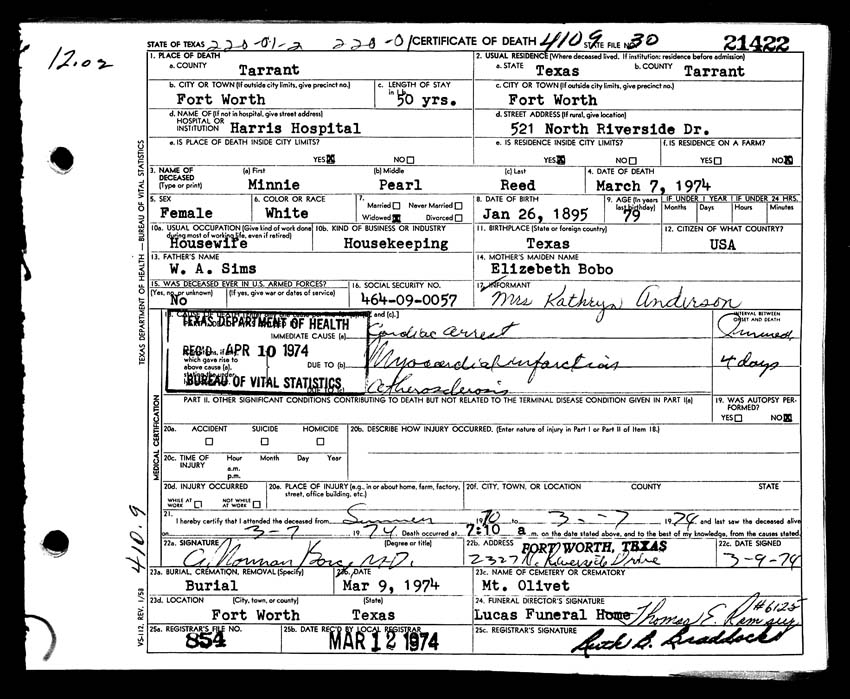 12.02
STATE OF TEXAS 220-01-2 220-01 CERTIFICATE OF DEATH 4109 STATE FILE NO. 30 21422
1. PLACE OF DEATH
a. COUNTY Tarrant
2. USUAL RESIDENCE (Where deceased lived. If institution: residence before admission)
a. STATE Texas b. COUNTY Tarrant
b. CITY OR TOWN (If outside city limits, give precinct no.) Fort Worth
c. LENGTH OF STAY in 1b 50 yrs.
c. CITY OR TOWN (If outside city limits, give precinct no.) Fort Worth
d. NAME OF (If not in hospital, give street address) HOSPITAL OR INSTITUTION Harris Hospital
d. STREET ADDRESS (If rural, give location) 521 North Riverside Dr.
e. IS PLACE OF DEATH INSIDE CITY LIMITS? YES☒ NO☐
e. IS RESIDENCE INSIDE CITY LIMITS? YES☒ NO☐
f. IS RESIDENCE ON A FARM? YES☐ NO☒
3. NAME OF DECEASED (Type or print) (a) First Minnie (b) Middle Pearl (c) Last Reed
4. DATE OF DEATH March 7, 1974
5. SEX Female
6. COLOR OR RACE White
7. Married☐ Never Married☐ Widowed☒ Divorced☐
8. DATE OF BIRTH Jan 26, 1895
9. AGE (In years last birthday) 79
IF UNDER 1 YEAR Months Days
IF UNDER 24 HRS. Hours Minutes
10a. USUAL OCCUPATION (Give kind of work done during most of working life, even if retired) Housewife
10b. KIND OF BUSINESS OR INDUSTRY Housekeeping
11. BIRTHPLACE (State or foreign country) Texas
12. CITIZEN OF WHAT COUNTRY? USA
13. FATHER'S NAME W. A. Sims
14. MOTHER'S MAIDEN NAME Elizebeth Bobo
15. WAS DECEASED EVER IN U.S. ARMED FORCES? (Yes, no, or unknown) No (If yes, give war or dates of service)
16. SOCIAL SECURITY NO. 464-09-0057
17. INFORMANT Mrs Kathryn Anderson
TEXAS DEPARTMENT OF HEALTH
REC'D APR 10 1974
BUREAU OF VITAL STATISTICS
and (c).]
INTERVAL BETWEEN ONSET AND DEATH
IMMEDIATE CAUSE (a) Cardiac arrest
which gave rise to above cause (a),
DUE TO (b) Myocardial infarction 4 days
atherosclerosis
PART II. OTHER SIGNIFICANT CONDITIONS CONTRIBUTING TO DEATH BUT NOT RELATED TO THE TERMINAL DISEASE CONDITION GIVEN IN PART I(a)
19. WAS AUTOPSY PERFORMED? YES☐ NO☒
20a. ACCIDENT ☐ SUICIDE ☐ HOMICIDE ☐
20b. DESCRIBE HOW INJURY OCCURRED. (Enter nature of injury in Part I or Part II of Item 18.)
20c. TIME OF INJURY Hour a.m. p.m. Month Day Year
20d. INJURY OCCURRED WHILE AT WORK ☐ NOT WHILE AT WORK ☐
20e. PLACE OF INJURY (e.g., in or about home, farm, factory, street, office building, etc.)
20f. CITY, TOWN, OR LOCATION COUNTY STATE
21. I hereby certify that I attended the deceased from Summer 1970 to 3-7 1974 and last saw the deceased alive
on 3-7 1974. Death occurred at 7:10 a m. on the date stated above, and to the best of my knowledge, from the causes stated.
22a. SIGNATURE (Degree or title) M.D.
22b. ADDRESS FORT WORTH, TEXAS 2327 N. Riverside Drive
22c. DATE SIGNED 3-9-74
23a. BURIAL, CREMATION, REMOVAL (Specify) Burial
23b. DATE Mar 9, 1974
23c. NAME OF CEMETERY OR CREMATORY Mt. Olivet
23d. LOCATION (City, town, or county) Fort Worth (State) Texas
24. FUNERAL DIRECTOR'S SIGNATURE Lucas Funeral Home Thomas E. Ramsey #6125
25a. REGISTRAR'S FILE NO. 854
25b. DATE REC'D BY LOCAL REGISTRAR MAR 12 1974
25c. REGISTRAR'S SIGNATURE Ruth B. Braddock
TEXAS DEPARTMENT OF HEALTH — BUREAU OF VITAL STATISTICS
MEDICAL CERTIFICATION
410.9
VS-112, REV. 1/58